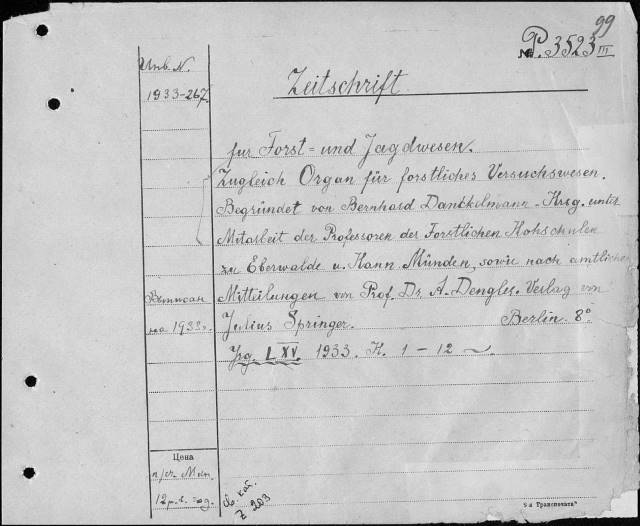 99
№ P. 3523 III
Инв. N.
1933-267.
Zeitschrift
für Forst= und Jagdwesen.
Zugleich Organ für forstliches Versuchswesen.
Begründet von Bernhard Danckelmann. Hrsg. unter
Mitarbeit der Professoren der Forstlichen Hohschulen
zu Eberwalde u. Hann. Münden, sowie nach amtlichen
Выписан
Mitteilungen von Prof. Dr. A. Dengler. Verlag von
на 1933 г.
Julius Springer. Berlin. 8°
Jrg. LXV. 1933. H. 1-12
Цена
12 р. в год.
Z 203
9-я Транспечать